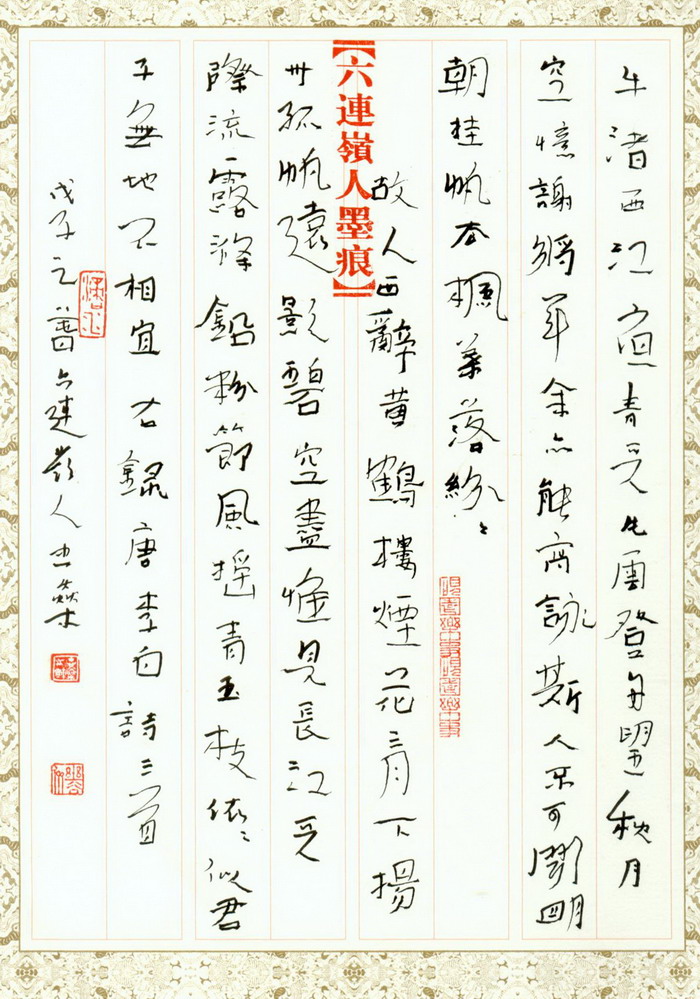 牛渚西江夜青天片雲登舟望秋月
空憶謝將軍余亦能高詠斯人不可聞明
朝挂帆去楓葉落紛〻
【六連嶺人墨痕】
故人西辭黄鶴樓煙花三月下揚
州孤帆遠影碧空盡惟見長江天
際流露滌鉛粉節風摇青玉枝依〻似君
子無地不相宜右録唐李白詩三首
戊子之六連嶺人